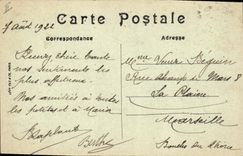 Carte Postale
Correspondance
Adresse
7 août 1922
Recevez chère tante
nos sentiments les
plus affectueux.
Nos amitiés à toutes
les petites et à Maria
Berthe
Mme Veuve
Rue Champ de Mars 8
La Plaine
Marseille
Bouches du Rhône